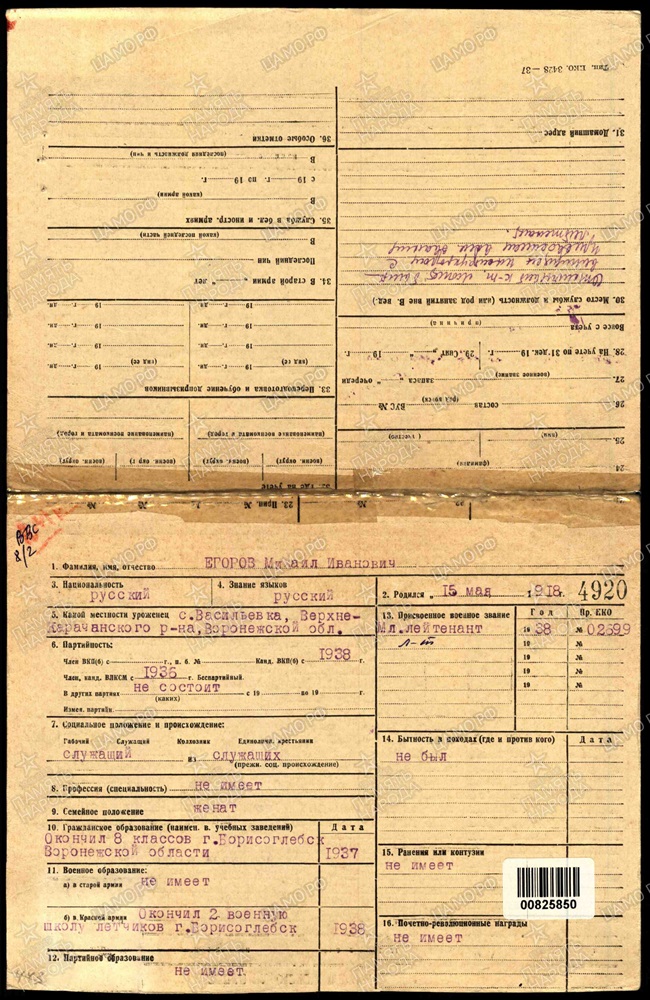 ВВС
8/2
1. Фамилия, имя, отчество ЕГОРОВ Михаил Иванович
3. Национальность
русский
4. Знание языков
русский
2. Родился „ 15 мая 1918 г. 4920
5. Какой местности уроженец с.Васильевка, Верхне-
Карачанского р-на, Воронежской обл.
6. Партийность:
Член ВКП(б) с г., п. б. № Канд. ВКП(б) с 1938 г.
Член, канд. ВЛКСМ с 1936 г. Беспартийный.
В других партиях не состоит с 19 по 19 г.
(каких)
Измен. партийн.
7. Социальное положение и происхождение:
Рабочий Служащий Колхозник Единоличн. крестьянин
служащий из служащих
(прежн. соц. происхожд.)
8. Профессия (специальность) не имеет
9. Семейное положение женат
10. Гражданское образование (наимен. в. учебных заведений) Дата
Окончил 8 классов г.Борисоглебск
Воронежской области 1937
11. Военное образование:
а) в старой армии не имеет
б) в Красной армии Окончил 2 военную
школу летчиков г.Борисоглебск 1938
12. Партийное образование
не имеет
13. Присвоенное военное звание Год Пр. НКО
Мл.лейтенант 19 38 № 02599
л-т 19 №
19 №
19 №
19 №
14. Бытность в походах (где и против кого) Дата
не был
15. Ранения или контузии
не имеет
16. Почетно-революционные награды
не имеет
00825850
23. Прик. №
24.
(фамилия)
25.
(имя) (отчество)
26. состав ВУС №
(род войск)
27. запаса „ “ очереди
(военное звание)
28. На учете по 31 дек. 19 г. 29. Снят „ “ 19 г.
Вовсе с учета
(причина)
30. Место службы и должность (или род занятий вне В. вед.)
31. Домашний адрес
Тип. НКО. 3428—37
(военн. округ) (воен. окр.) (воен. округ) (военн. округ)
(наименование военкомата и город) (наименование военкомата и город)
33. Переподготовка и обучение допризывников
(вид ее) (вид ее)
19 г. дн. 19 г. дн.
19 г. дн. 19 г. дн.
19 г. дн. 19 г. дн.
34. В старой армии „ “ лет
Последний чин
В
(какой последней части)
35. Служба в бел. и иностр. армиях
В
(какой армии)
с 19 г. по 19 г.
В
(последнее должность и чин)
36. Особые отметки
ЦАМО.РФ
ПАМЯТЬ
НАРОДА